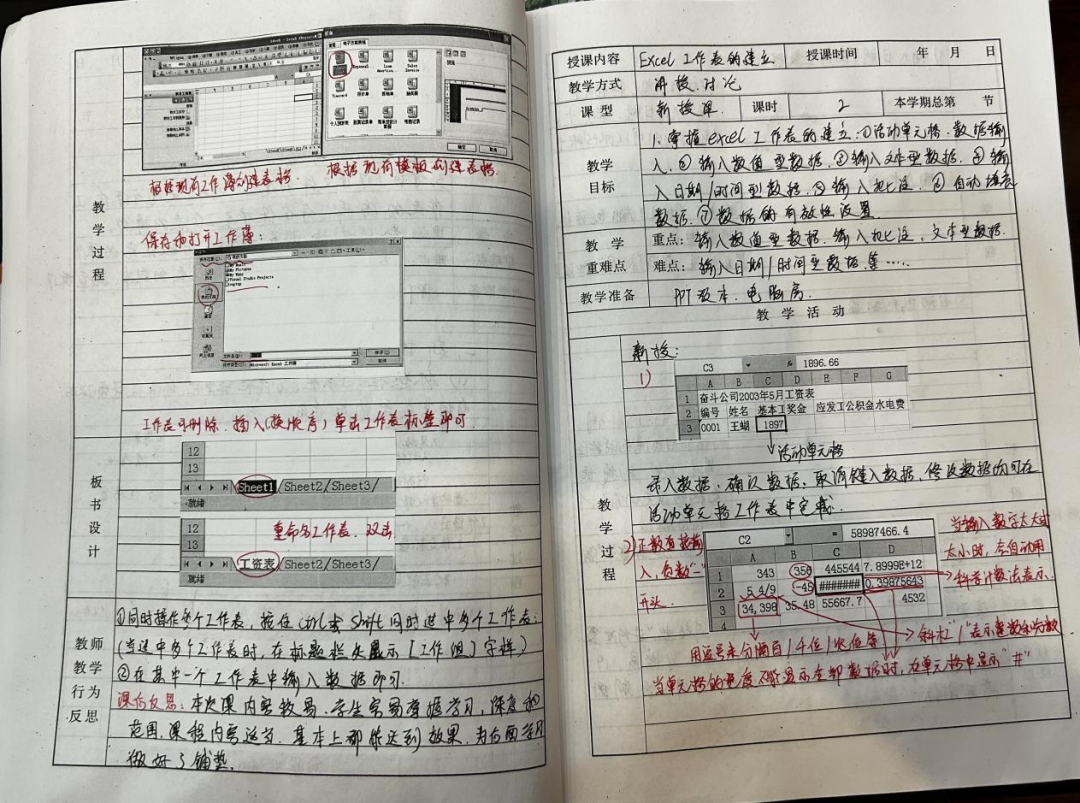 根据现有工作簿创建表格
根据现有模板创建表格
教学过程
保存和打开工作薄:
工作表可删除、插入(按顺序)单击工作表标签即可
12
13
Sheet1/Sheet2/Sheet3/
就绪
板书设计
12
13
重命名工作表、双击
工资表/Sheet2/Sheet3/
就绪
教师教学行为反思
①同时操作多个工作表,按住Ctrl或Shift同时选中多个工作表:
(当选中多个工作表时,在标题栏处显示[工作组]字样)
②在其中一个工作表中输入数据即可.
课后反思:本次课内容较易、学生容易掌握学习,深度和
范围、课程内容适当、基本上都能达到效果,为后面学习
做好了铺垫.
授课内容 Excel 工作表的建立 授课时间 年 月 日
教学方式 讲授、讨论
课型 新授课 课时 2 本学期总第 节
教学目标
1.掌握excel工作表的建立:①活动单元格、数据输
入、②输入数值型数据、③输入文本型数据、④输
入日期/时间型数据、⑤输入批注、⑥自动填充
数据、⑦数据的有效性设置.
教学重难点
重点:输入数值型数据、输入批注、文本型数据.
难点:输入日期/时间型数据等……
教学准备 PPT 教本、电脑房.
教学活动
新授:
1)
C3 1896.66
A B C D E F G
1 奋斗公司2003年5月工资表
2 编号 姓名 基本工奖金 应发工公积金水电费
3 0001 王蝴 1897
活动单元格
录入数据、确认数据、取消键入数据、修改数据均可在
活动单元格工作表中完成.
教学过程
2)正数直接输
入,负数"-"
开头.
C2 = 58987466.4
A B C D
1 343 356 445544 7.8999E+12
2 5 4/9 -49 ####### 0.39875643
3 34,398 35.48 55667.7 4532
4
当输入数字太大或
太小时,会自动用
科学计数法表示.
用逗号来分隔百/千位/次位等
斜杠"/"表示整数和分数
当单元格的宽度不够显示全部数据时,在单元格中显示"#"